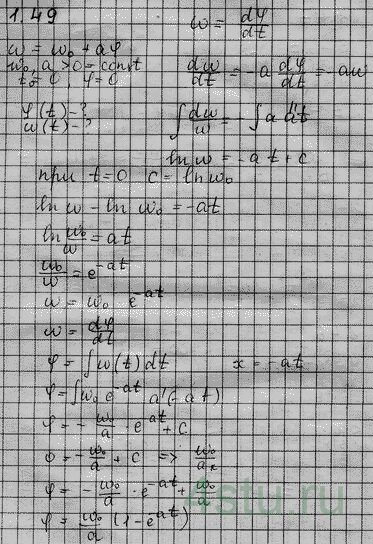 1.49
ω = dφ/dt
ω = ω₀ + aφ
ω₀, a > 0 = const
t₀ = 0, φ = 0
dω/dt = -a dφ/dt = -aω
φ(t) - ?
ω(t) - ?
∫ dω/ω = -∫ a dt
ln ω = -a t + c
при t = 0 c = ln ω₀
ln ω - ln ω₀ = -at
ln ω₀/ω = at
ω₀/ω = e^(-at)
ω = ω₀ e^(-at)
ω = dφ/dt
φ = ∫ω(t) dt x = -at
φ = ∫ω₀ e^(-at) a'(-at)
φ = -ω₀/a · e^(-at) + c
0 = -ω₀/a + c => ω₀/a
φ = -ω₀/a · e^(-at) + ω₀/a
φ = ω₀/a (1 - e^(-at))
4stu.ru